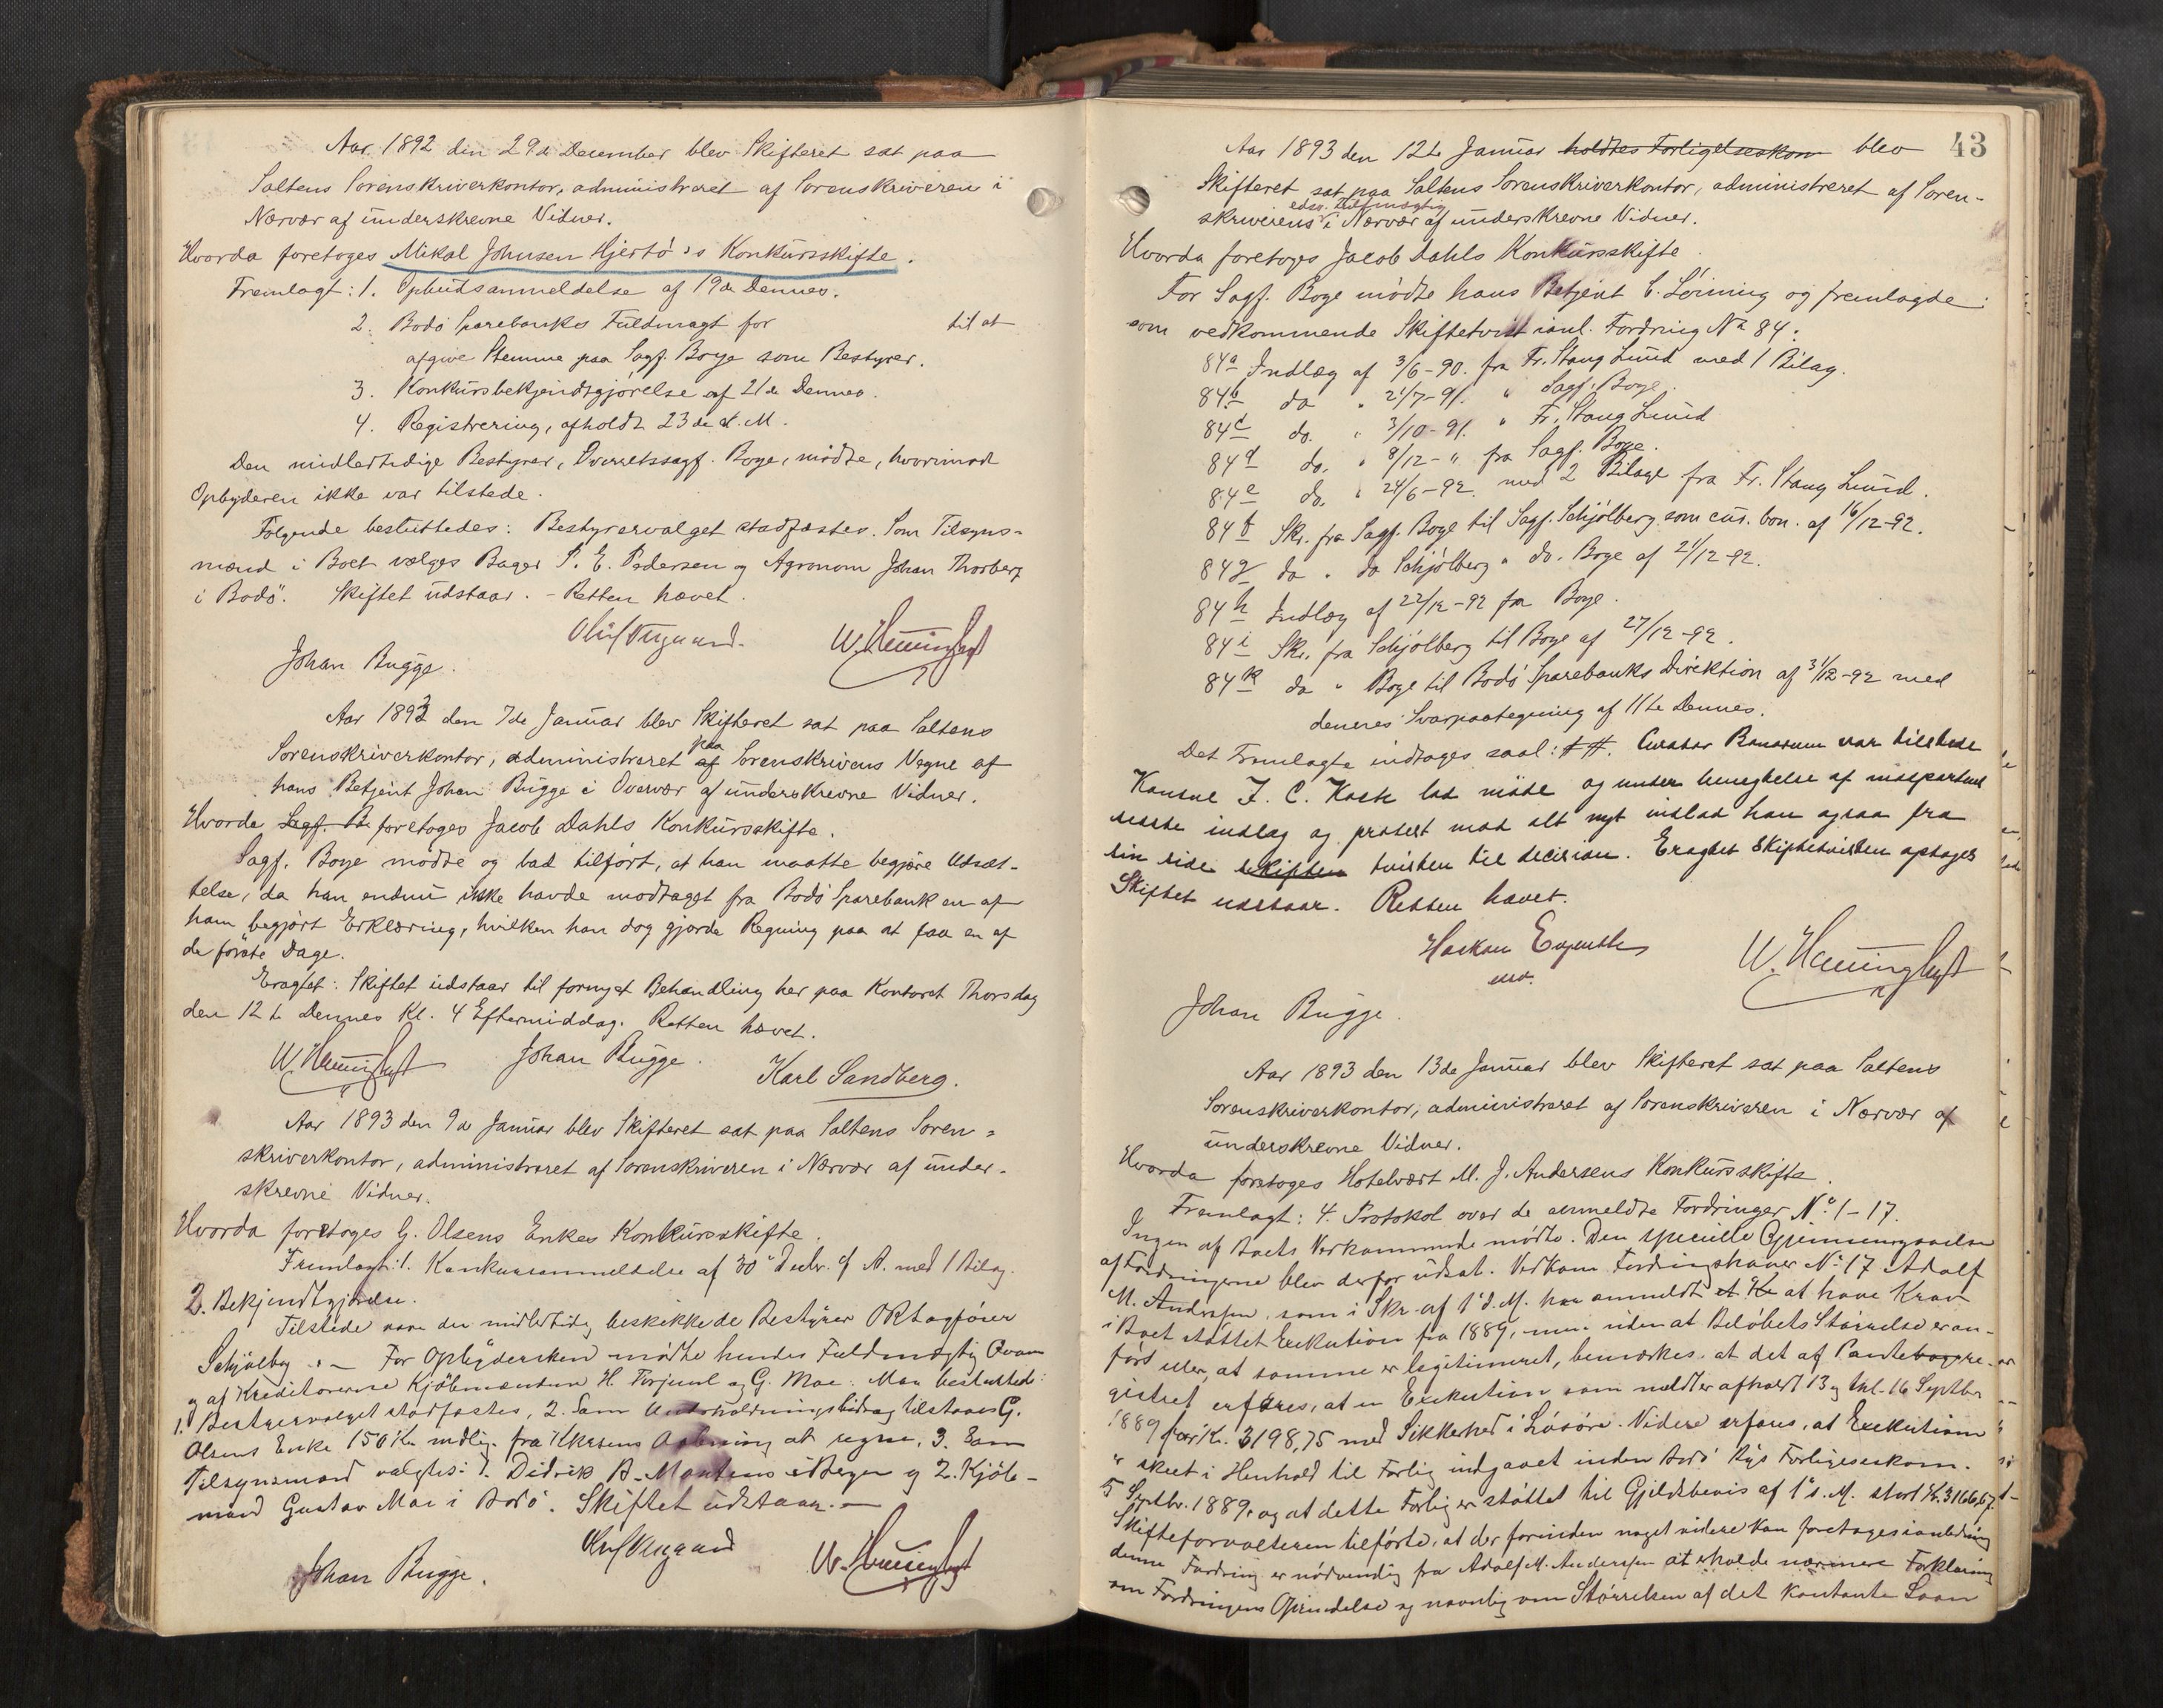 Aar 1892 den 29de December blev Skifteret sat paa
Saltens Sorenskriverkontor, administreret af Sorenskriveren i
Nærvær af underskrevne Vidner.
Hvorda foretoges Mikal Johnsen Hjertö's Konkursskifte.
Fremlagt: 1. Opbudsanmeldelse af 19de Dennes.
2. Bodö Sparebanks Fuldmagt for til at
afgive Stemme paa Sagf. Boye som Bestyrer.
3. Konkursbekjendtgjörelse af 21de Dennes.
4. Registrering, afholdt 23de d. M.
Den midlertidige Bestyrer, Overretssagf. Boye, mödte, hvorimod
Opbyderen ikke var tilstede.
Fölgende besluttedes: Bestyrervalget stadfæstes. Som Tilsyns-
mænd i Boet vælges Bager P. E. Pedersen og Agronom Johan Thorberg
i Bodö. Skiftet udstaar. - Retten hævet.
Johan Bugge.
Aar 1893 den 7de Januar blev Skifteret sat paa Saltens
Sorenskriverkontor, administreret af paa Sorenskrivens Vegne af
hans Betjent Johan Bugge i Overvær af underskrevne Vidner.
Hvorda Sagf. B foretoges Jacob Dahls Konkursskifte.
Sagf. Boye mödte og bad tilfört, at han maatte begjære Udsæt-
telse, da han endnu ikke havde modtaget fra Bodö Sparebank en af
ham begjært Erklæring, hvilken han dog gjorde Regning paa at faa en af
de förste Dage.
Eragtet: Skiftet udstaar til fornyet Behandling her paa Kontoret Thorsdag
den 12te Dennes Kl. 4 Eftermiddag. Retten hævet.
Johan Bugge. Karl Sandberg.
Aar 1893 den 9de Januar blev Skifteret sat paa Saltens Soren=
skriverkontor, administreret af Sorenskriveren i Nærvær af under-
skrevne Vidner.
Hvorda foretoges G. Olsens Enkes Konkursskifte.
Fremlagt: 1. Konkursanmeldelse af 30 Decbr. f. A. med 1 Bilag.
2. Bekjendtgjörelse.
Tilstede vare den midlertidig beskikkede Bestyrer ORsagförer
Schjölberg. - For Opbydersken mödte hendes Fuldmægtig
og af Kreditorerne Kjöbmændene H. og G. Moe. Man besluttede:
1. Bestyrervalget stadfæstes, 2. Som Underholdningsbidrag tilstaaes G.
Olsens Enke 150 Kr. mdlig. fra Konkursens Aabning at regne, 3. Som
Tilsynsmænd valgtes: 1. Didrik A. i Bergen og 2. Kjöb-
mand Gustav Moe i Bodö. Skiftet udstaar. -
Johan Bugge.
43
Aar 1893 den 12te Januar holdtes Forligelseskom blev
Skifteret sat paa Saltens Sorenskriverkontor, administreret af Soren-
skriverens edsv. Fuldmægtig i Nærvær af underskrevne Vidner.
Hvorda foretoges Jacob Dahls Konkursskifte.
For Sagf. Boye mödte hans Betjent C. Lönning og fremlagde:
som vedkommende Skiftetvist ianl. Fordring No 84:
84a Indlæg af 3/6-90. fra Fr. Stang Lund med 1 Bilag.
84b do " 21/7-91. " Sagf. Boye.
84c do. " 3/10-91. " Fr. Stang Lund
84d do. " 8/12-" fra Sagf. Boye.
84e do. " 24/6-92. med 2 Bilage fra Fr. Stang Lund.
84f Skr. fra Sagf. Boye til Sagf. Schjölberg som cur. bon. af 16/12-92.
84g do " do Schjölberg " do. Boye af 21/12-92.
84h Indlæg af 22/12-92 fra Boye.
84i Skr. fra Schjölberg til Boye af 27/12-92.
84k do " Boye til Bodö Sparebanks Direktion af 31/12-92 med
dennes Svarpaategning af 11te Dennes.
Det Fremlagte indtages saal: ##. Curator Bonorum var tilstede
Konsul J. C. Koch lod möde og under benegtelse af modpartens
sidste indlæg og protest mod alt nyt indlod han ogsaa fra
sin side skiften tvisten til decision. Eragtet Skiftetvisten optages
Skiftet udstaar. Retten hævet.
Johan Bugge.
Aar 1893 den 13de Januar blev Skifteret sat paa Saltens
Sorenskriverkontor, administreret af Sorenskriveren i Nærvær af
underskrevne Vidner.
Hvorda foretoges Hotelvært M. J. Andersens Konkursskifte.
Fremlagt: 4. Protokol over de anmeldte Fordringer No 1-17.
Ingen af Boets Vedkommende mödte. Den specielle Gjennemgaaelse
af Fordringerne blev derfor udsat. Vedkom. Fordringshaver No 17 Adolf
M. Andersen, som i Skr. af 1 d. M. har anmeldt et Kr at have Krav
i Boet støttet Exekution fra 1889, men uden at Belöbets Störrelse er an-
fört eller, at samme er legitimeret, bemærkes, at det af Pantebogre-
gistret erfares, at en Exekution som meldt er afholdt 13 og 16 Septbr
1889 for Kr. 3198,75 med Sikkerhed i Lösöre. Videre erfares, at Exekutionen
er skeet i Henhold til Forlig indgaaet inden Bodö Bys Forligelseskom.
5 Septbr. 1889, og at dette Forlig er støttet til Gjeldsbevis af 1 s. M. stort Kr. 3166,67.
Skifteforvalteren tilförte, at der forinden noget videre kan foretages i anledning
denne Fordring er nödvendig fra Adolf M. Andersen at erholde nærmere Forklaring
om Fordringens Oprindelse og navnlig om Störrelsen af det kontante Laan